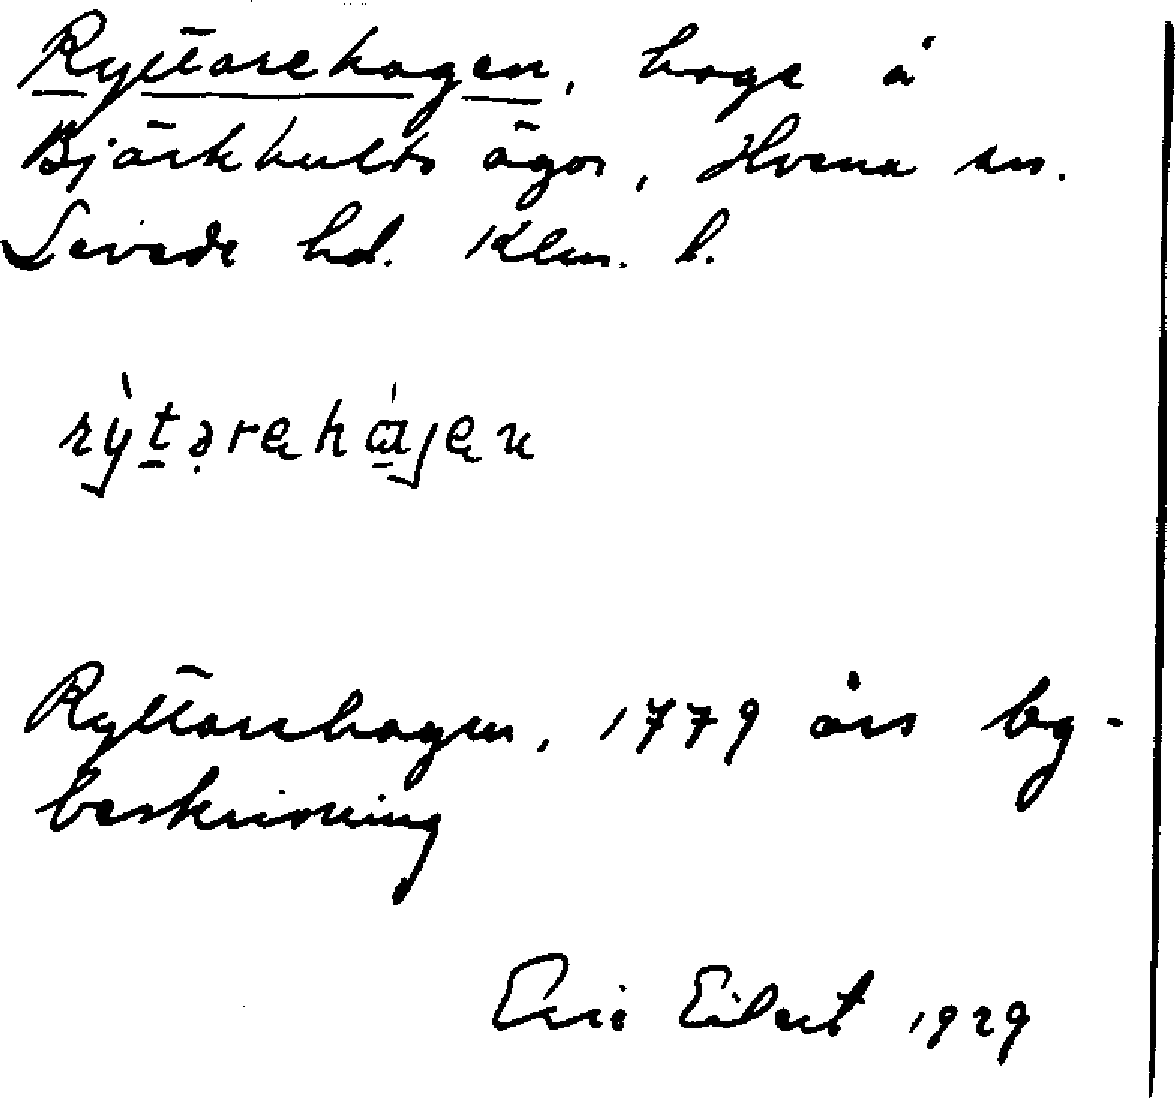 Ryttarehagen, hage å
Björkhults ägor, Hvena sn.
Sevede hd. Klm. l.
rỳt̠ə̣rehá̠gen
Ryttarehagen, 1779 års by-
beskrivning
Eric Eilert 1929